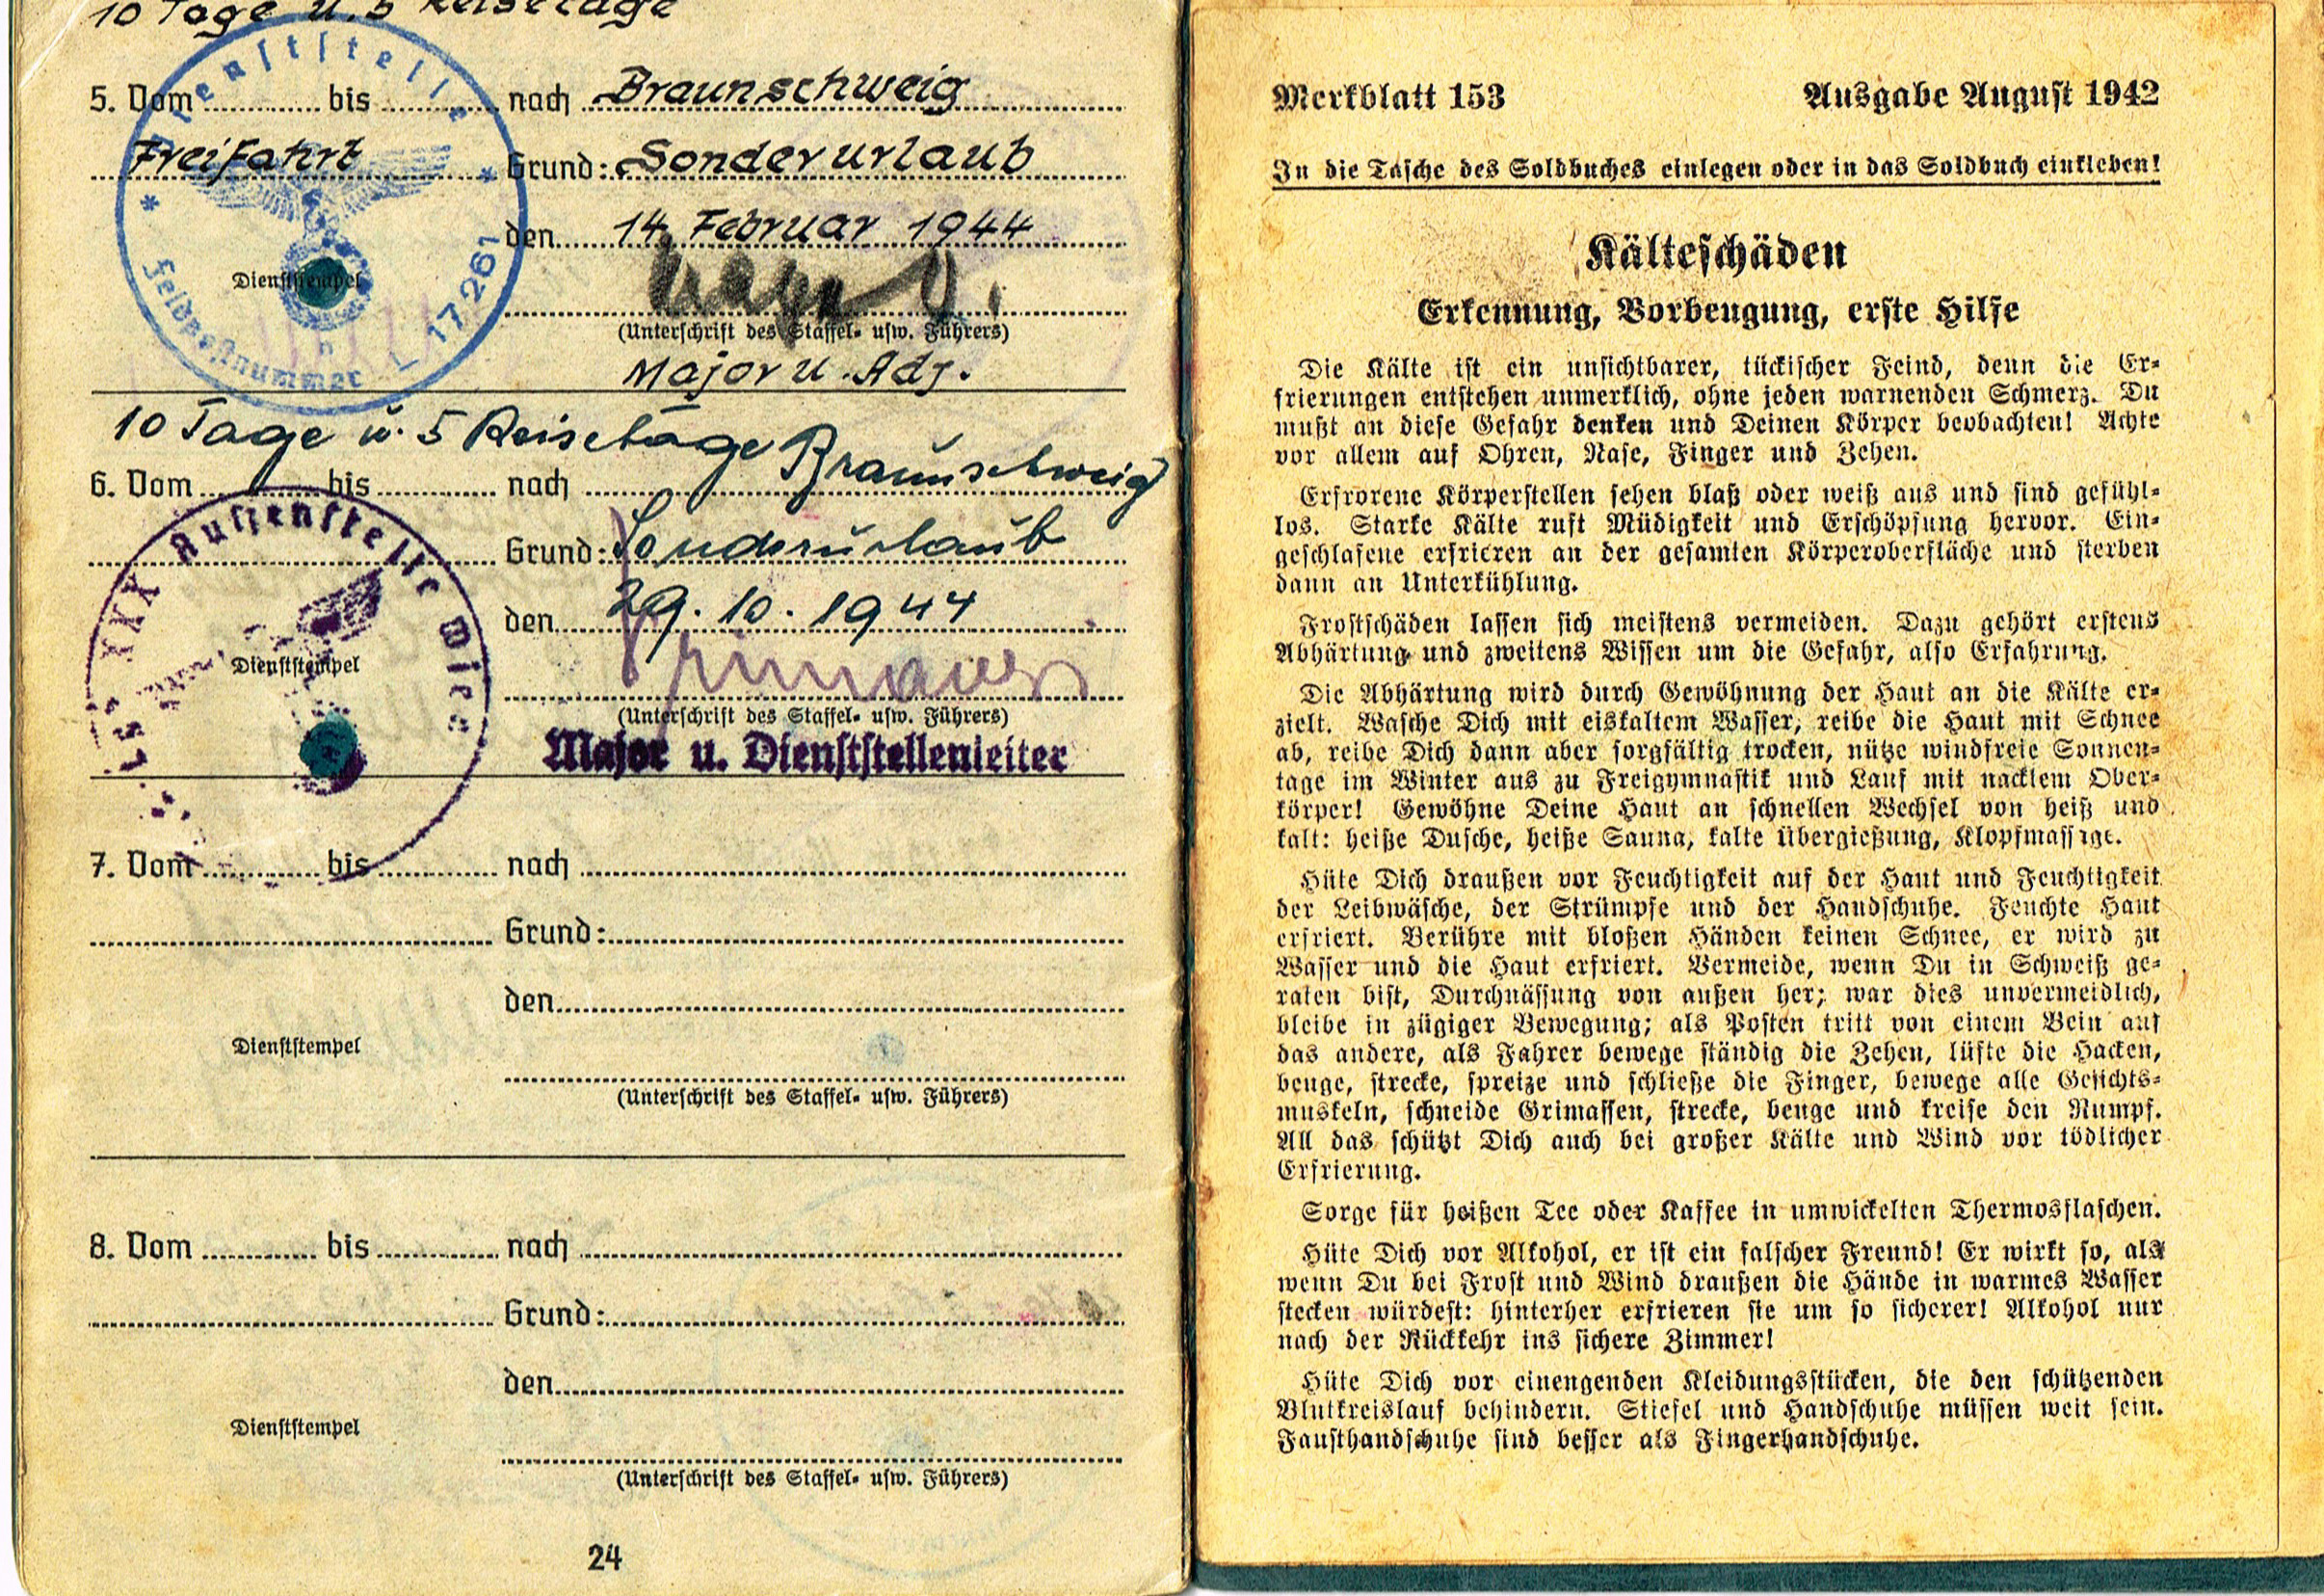 10 Tage u. 5 Reisetage
5. Vom bis nach Braunschweig
Freifahrt Grund: Sonderurlaub
den 14. Februar 1944
Dienststempel
(Unterschrift des Staffel- usw. Führers)
Major u. Adj.
Dienststelle
Feldpostnummer L 17261
10 Tage u. 5 Reisetage Braunschweig
6. Vom bis nach
Grund: Sonderurlaub
den 29.10.1944
Dienststempel
(Unterschrift des Staffel- usw. Führers)
Major u. Dienststellenleiter
XXX Außenstelle
7. Vom bis nach
Grund:
den
Dienststempel
(Unterschrift des Staffel- usw. Führers)
8. Vom bis nach
Grund:
den
Dienststempel
(Unterschrift des Staffel- usw. Führers)
24
Merkblatt 153 Ausgabe August 1942
In die Tasche des Soldbuches einlegen oder in das Soldbuch einkleben!
Kälteschäden
Erkennung, Vorbeugung, erste Hilfe
Die Kälte ist ein unsichtbarer, tückischer Feind, denn die Er-
frierungen entstehen unmerklich, ohne jeden warnenden Schmerz. Du
mußt an diese Gefahr denken und Deinen Körper beobachten! Achte
vor allem auf Ohren, Nase, Finger und Zehen.
Erfrorene Körperstellen sehen blaß oder weiß aus und sind gefühl-
los. Starke Kälte ruft Müdigkeit und Erschöpfung hervor. Ein-
geschlafene erfrieren an der gesamten Körperoberfläche und sterben
dann an Unterkühlung.
Frostschäden lassen sich meistens vermeiden. Dazu gehört erstens
Abhärtung und zweitens Wissen um die Gefahr, also Erfahrung.
Die Abhärtung wird durch Gewöhnung der Haut an die Kälte er-
zielt. Wasche Dich mit eiskaltem Wasser, reibe die Haut mit Schnee
ab, reibe Dich dann aber sorgfältig trocken, nütze windfreie Sonnen-
tage im Winter aus zu Freigymnastik und Lauf mit nacktem Ober-
körper! Gewöhne Deine Haut an schnellen Wechsel von heiß und
kalt: heiße Dusche, heiße Sauna, kalte Übergießung, Klopfmassage.
Hüte Dich draußen vor Feuchtigkeit auf der Haut und Feuchtigkeit
der Leibwäsche, der Strümpfe und der Handschuhe. Feuchte Haut
erfriert. Berühre mit bloßen Händen keinen Schnee, er wird zu
Wasser und die Haut erfriert. Vermeide, wenn Du in Schweiß ge-
raten bist, Durchnässung von außen her; war dies unvermeidlich,
bleibe in zügiger Bewegung; als Posten tritt von einem Bein auf
das andere, als Fahrer bewege ständig die Zehen, lüfte die Hacken,
beuge, strecke, spreize und schließe die Finger, bewege alle Gesichts-
muskeln, schneide Grimassen, strecke, beuge und kreise den Rumpf.
All das schützt Dich auch bei großer Kälte und Wind vor tödlicher
Erfrierung.
Sorge für heißen Tee oder Kaffee in umwickelten Thermosflaschen.
Hüte Dich vor Alkohol, er ist ein falscher Freund! Er wirkt so, als
wenn Du bei Frost und Wind draußen die Hände in warmes Wasser
stecken würdest: hinterher erfrieren sie um so sicherer! Alkohol nur
nach der Rückkehr ins sichere Zimmer!
Hüte Dich vor einengenden Kleidungsstücken, die den schützenden
Blutkreislauf behindern. Stiefel und Handschuhe müssen weit sein.
Fausthandschuhe sind besser als Fingerhandschuhe.